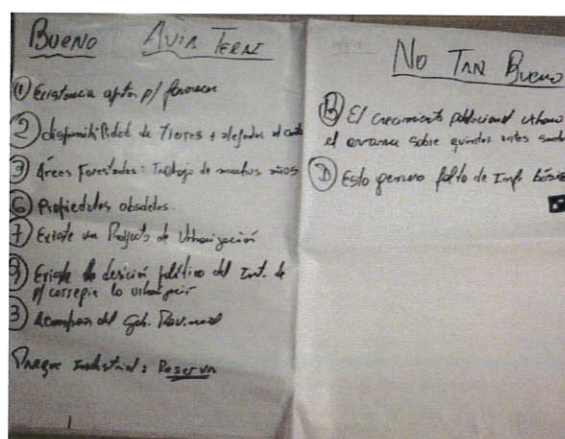 BUENO AVIA TERAI
① Existencia aptas p/
② disponibilidad de tierras + alejadas al
③ Áreas Forestadas: Trabajo de muchos años
⑥ Propiedades obsoletas
⑦ Existe un Proyecto de Urbanización
⑨ Existe la desición política del Int. de
p/ corregir la urbanización
③ del Gob. Provincial
Parque Industrial: Reserva
NO TAN BUENO
Ⓑ El crecimiento poblacional urbano
el avance sobre quintas antes
Ⓓ Esto genero falta de Inf. básica